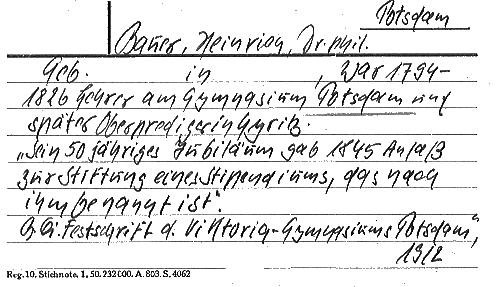 Potsdam
Bauer, Heinrich, Dr. phil.
Geb. in , war 1794-
1826 Lehrer am Gymnasium Potsdam und
später Oberprediger in Kyritz.
„Sein 50 jähriges Jubiläum gab 1845 Anlaß
zur Stiftung eines Stipendiums, das nach
ihm benannt ist".
Festschrift d. Viktoria-Gymnasiums Potsdam",
1912
Reg. 10. Stichnote. 1, 50. 232000. A. 803. S. 4062